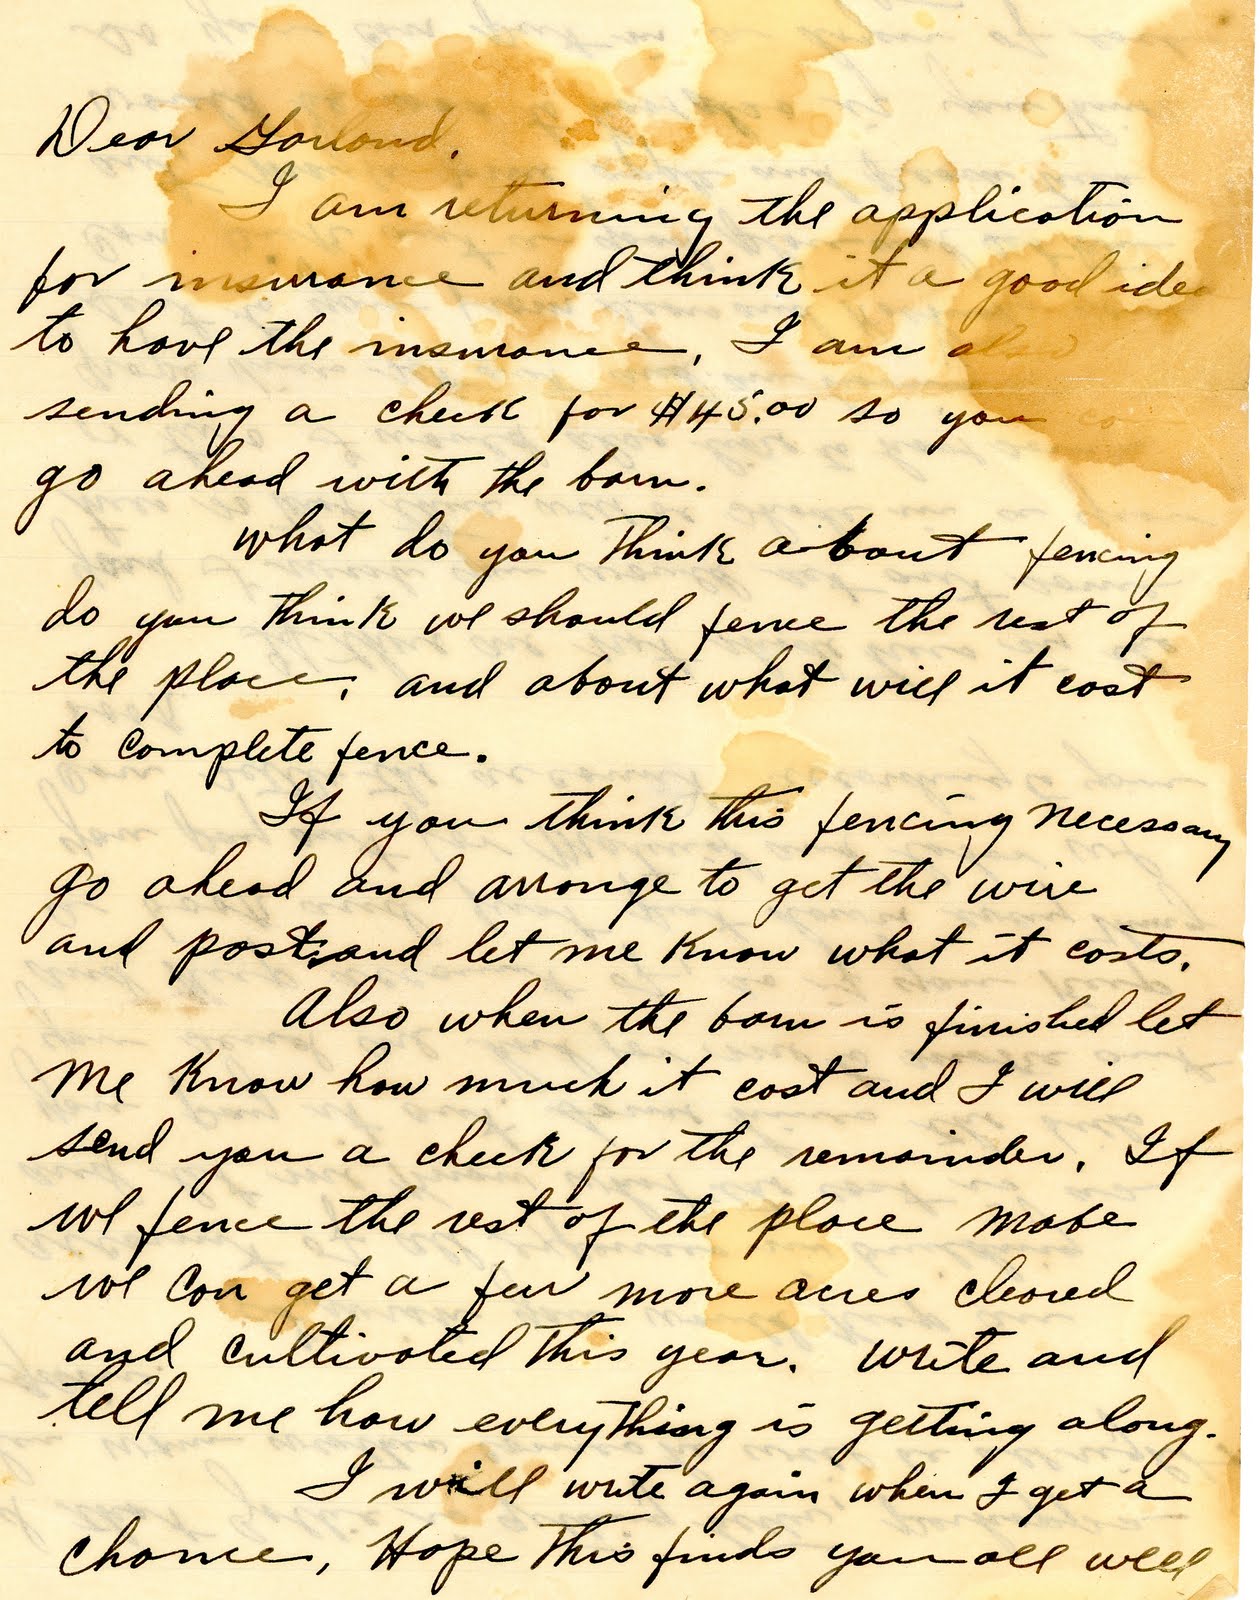 Dear Garland.
I am returning the application
for insurance and think it a good idea
to have the insurance, I am also
sending a check for $45.00 so you can
go ahead with the barn.
What do you think about fencing
do you think we should fence the rest of
the place, and about what will it cost
to complete fence.
If you think this fencing necessary
go ahead and arrange to get the wire
and posts, and let me know what it costs.
Also when the barn is finished let
me know how much it cost and I will
send you a check for the remainder. If
we fence the rest of the place mabe
we can get a few more acres cleared
and cultivated this year. Write and
tell me how everything is getting along.
I will write again when I get a
chance, Hope this finds you all well